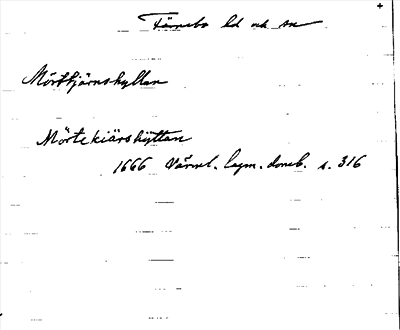 Färnebo hd och sn
+
Mörttjärnshyttan
Mörtekiärshyttan
1666 Värml. lagm. domb. s. 316